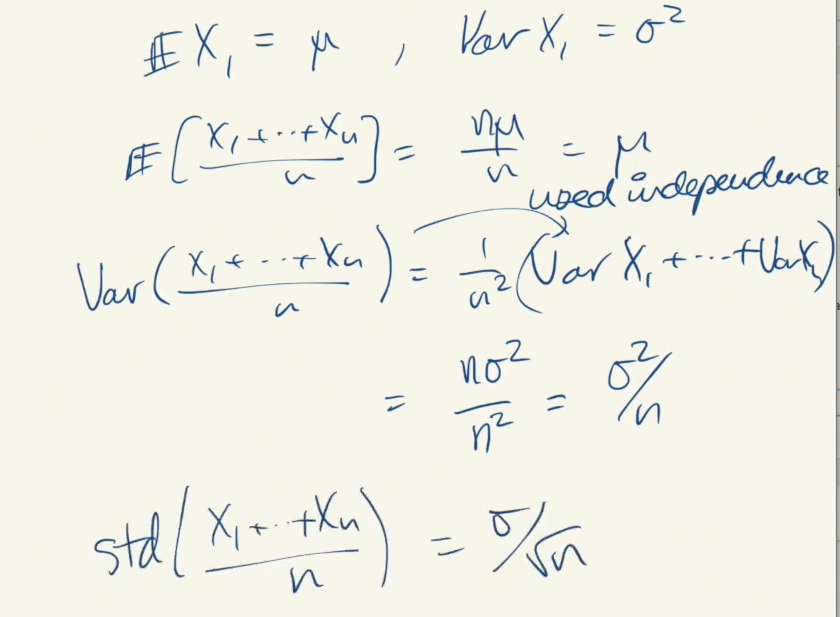 𝔼X₁ = μ , Var X₁ = σ²
𝔼[(X₁+⋯+Xₙ)/n] = nμ/n = μ
used independence
Var((X₁+⋯+Xₙ)/n) = 1/n² (Var X₁+⋯+Var Xₙ)
= nσ²/n² = σ²/n
std((X₁+⋯+Xₙ)/n) = σ/√n